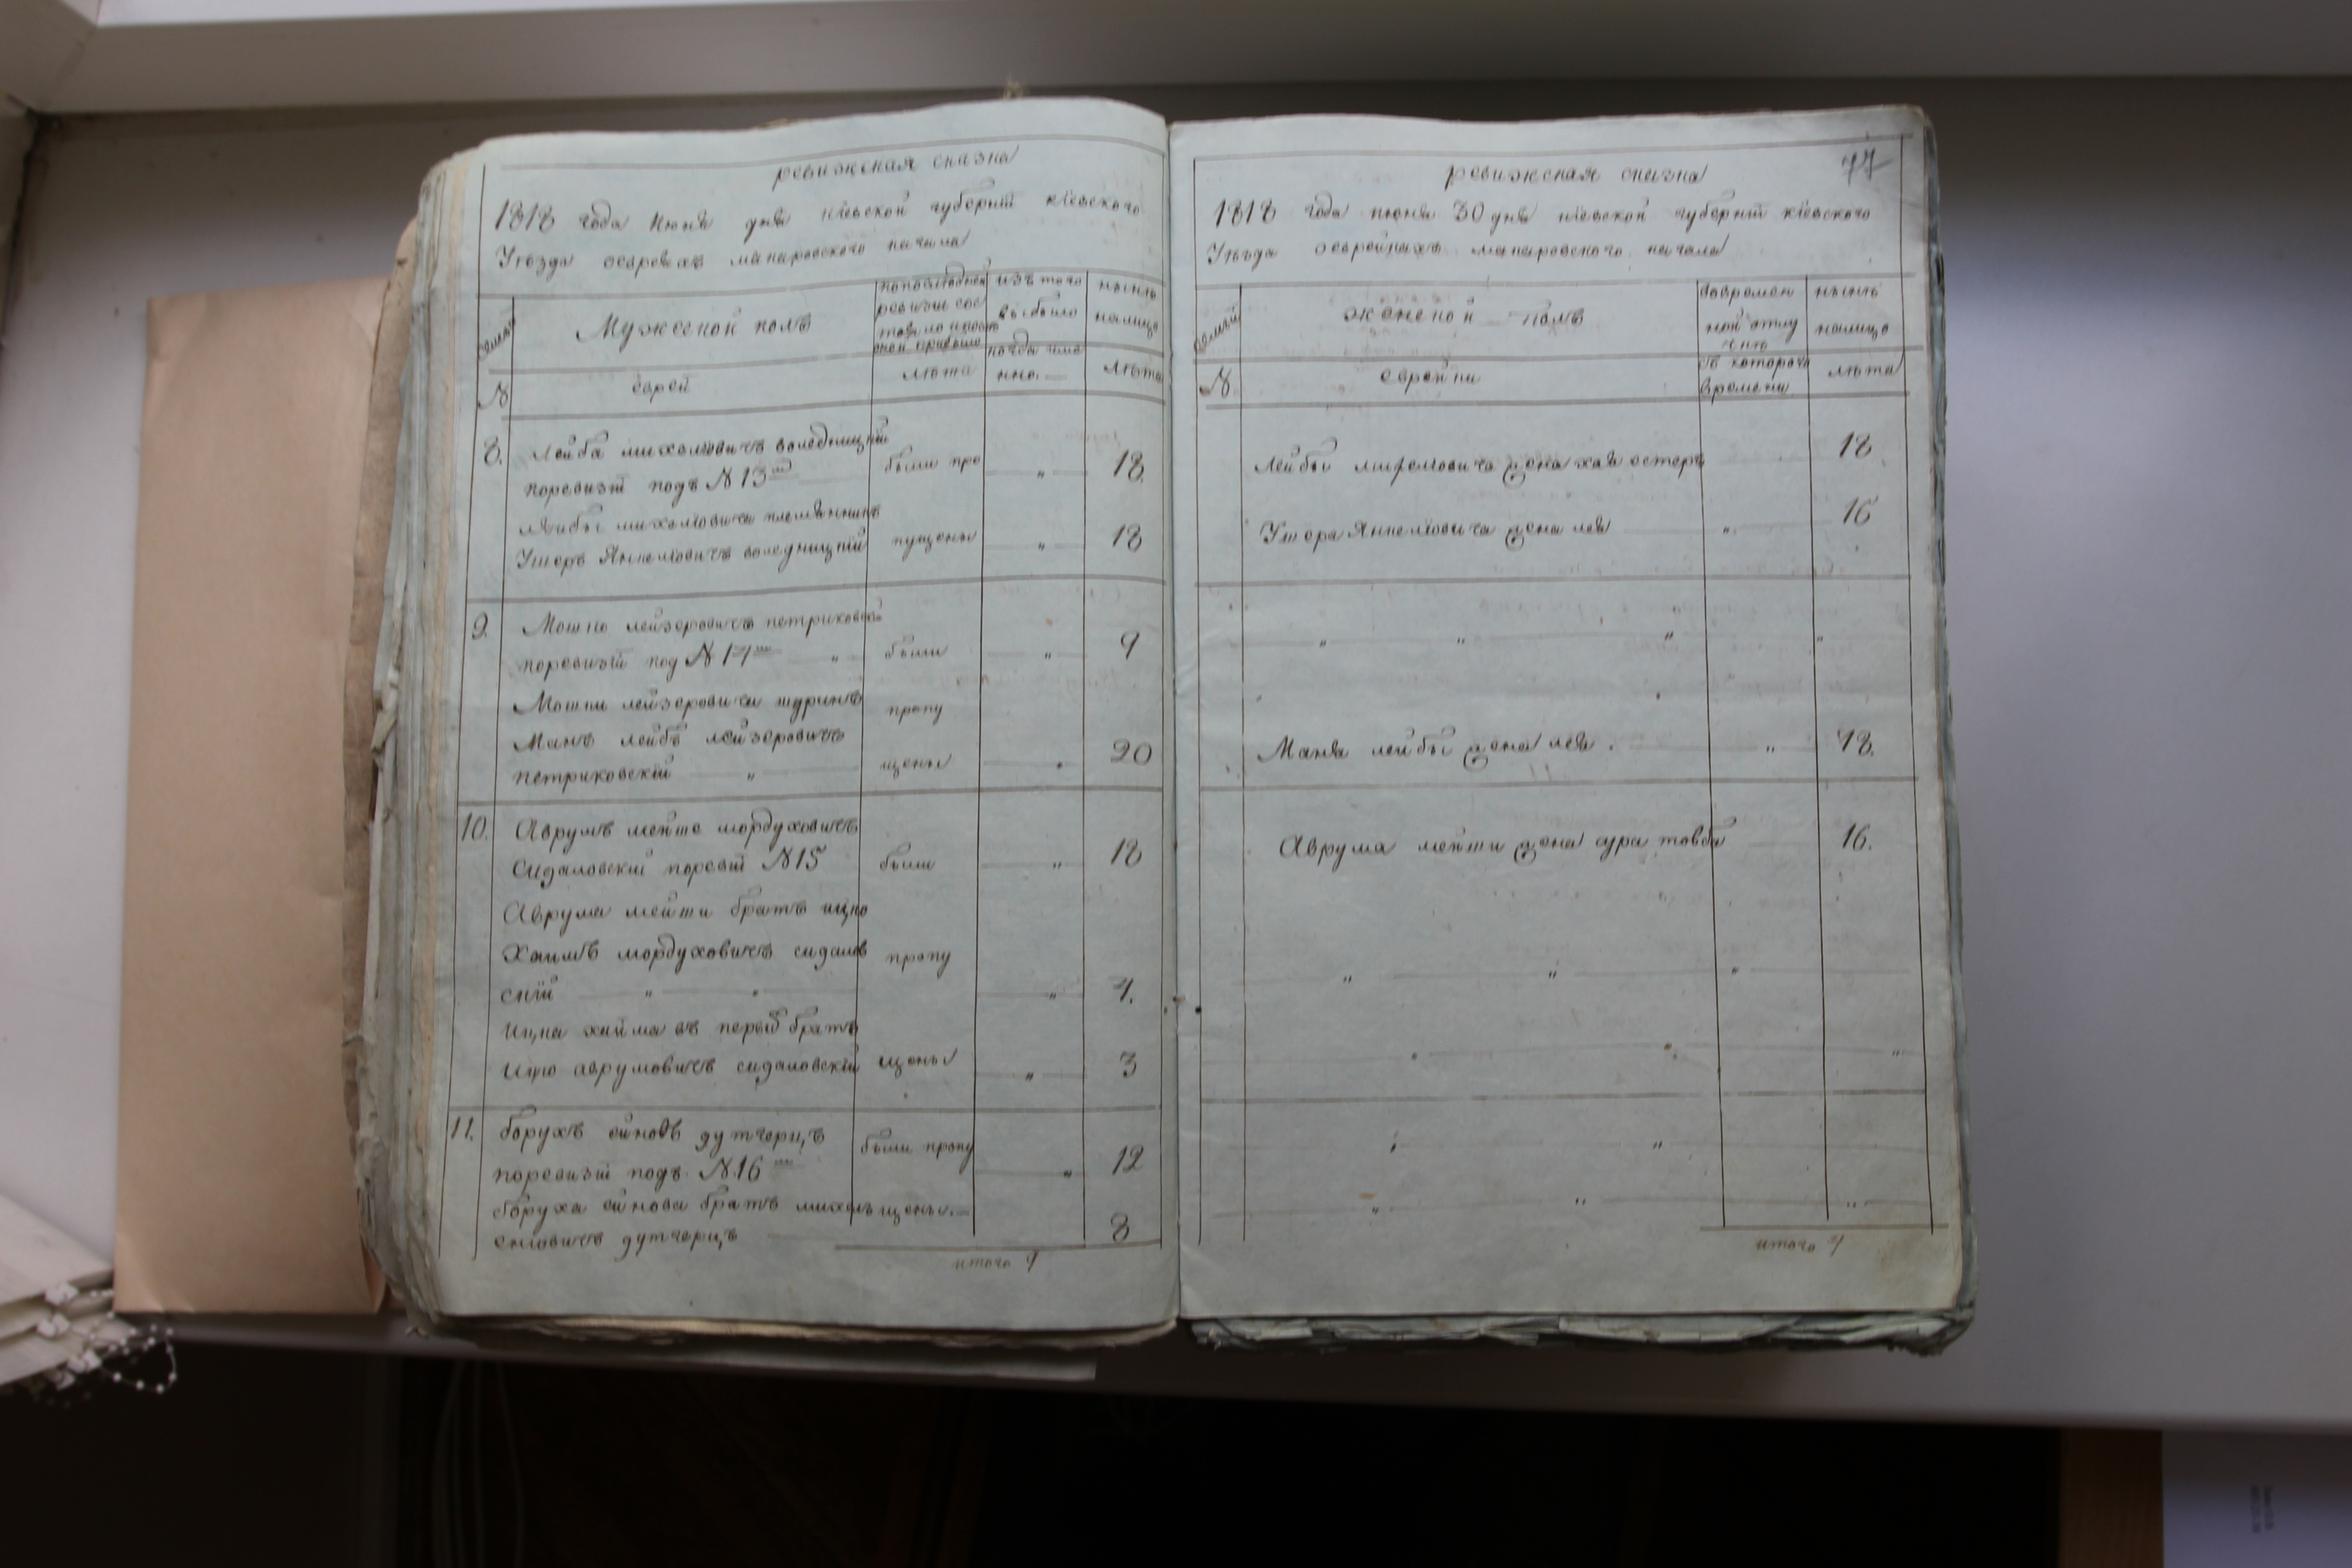 ревижская сказка
1818 года июня дня кіевской губерніи кіевского
Уезда оевреяхъ макаровского кагала
семьи
Мужеской полъ
попоследней
ревизіи сос
изъ того
выбыло
ныне
налицо
когда име
нно.
№
еврей
лета
лета
8. Лейба михелювичъ
поревизіи подъ №13
были про
18
Лейбы михелювича племянникъ
Ушеръ Янкелювичъ
пущены
18
9. Мошко лейзеровичъ петриковскій
поревизіи под №14
были
9
Мошки лейзеровича шуринъ
пропу
Манъ лейбъ лейзеровичъ
петриковскій
щены
20
10. Аврумъ мейше мордуховичъ
Сидаловскій поревіи №15
были
18
Аврума мейши братъ ицко
Хаимъ мордуховичъ сидалов
пропу
скій
Ицка хаима въ первыій братъ
Ицко аврумовичъ сидаловскій
щены
3
11. борухъ
поревизіи подъ №16
были пропу
12
боруха братъ михель
щены
8
итого 9
77
ревижская сказка
1818 года июня 30 дня кіевской губерніи кіевского
Уезда оеврейкахъ макаровского кагала
семьи
женской полъ
вовремен
ной отлу
чке
ныне
налицо
№
еврейки
съ которого
времени
лета
Лейбы михелювича жена хая естеръ
18
Ушера Янкелювича жена лея
16
Маня лейбы жена лея
18.
Аврума мейши жена сура товба
16.
итого 4